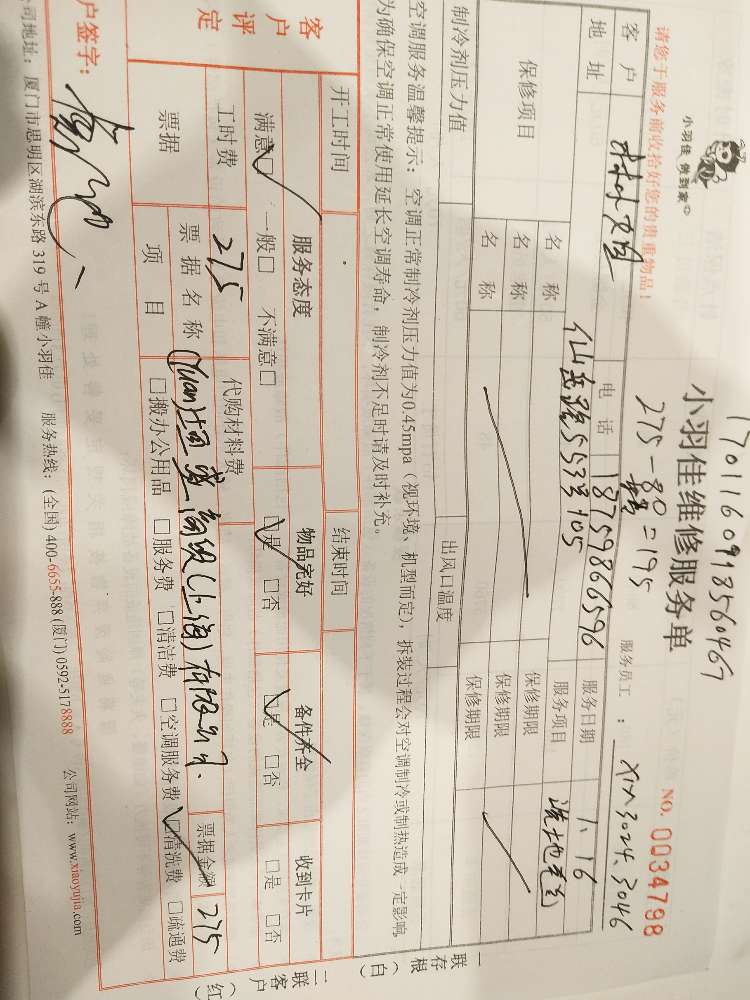 小羽佳 做到家
请您于服务前收拾好您的贵重物品!
1701160918560467
小羽佳维修服务单
275-80=195
NO. 0034798
服务员工: 3024.3046
客户 电话 18759866596 服务日期 1.16
地址 仙岳路553号105 服务项目 洗地毯
保修项目 名称 保修期限
名称 保修期限
名称 保修期限
制冷剂压力值 出风口温度
空调服务温馨提示: 空调正常制冷剂压力值为0.45mpa(视环境、机型而定),拆装过程会对空调制冷或制热造成一定影响,
为确保空调正常使用延长空调寿命,制冷剂不足时请及时补充。
开工时间 结束时间
客户评定 服务态度 物品完好 备件齐全 收到卡片
满意□ 一般□ 不满意□ □是 □否 □是 □否 □是 □否
工时费 275 代购材料费
票据 票据名称 (上海)有限公司. 票据金额 275
项目 □搬办公用品 □服务费 □清洁费 □空调服务费 □清洗费 □疏通费
户签字:
司地址: 厦门市思明区湖滨东路 319 号 A 幢小羽佳 服务热线: (全国) 400-6655-888 (厦门) 0592-5178888 公司网站: www.xiaoyujia.com
一联存根(白)
二联客户(红)